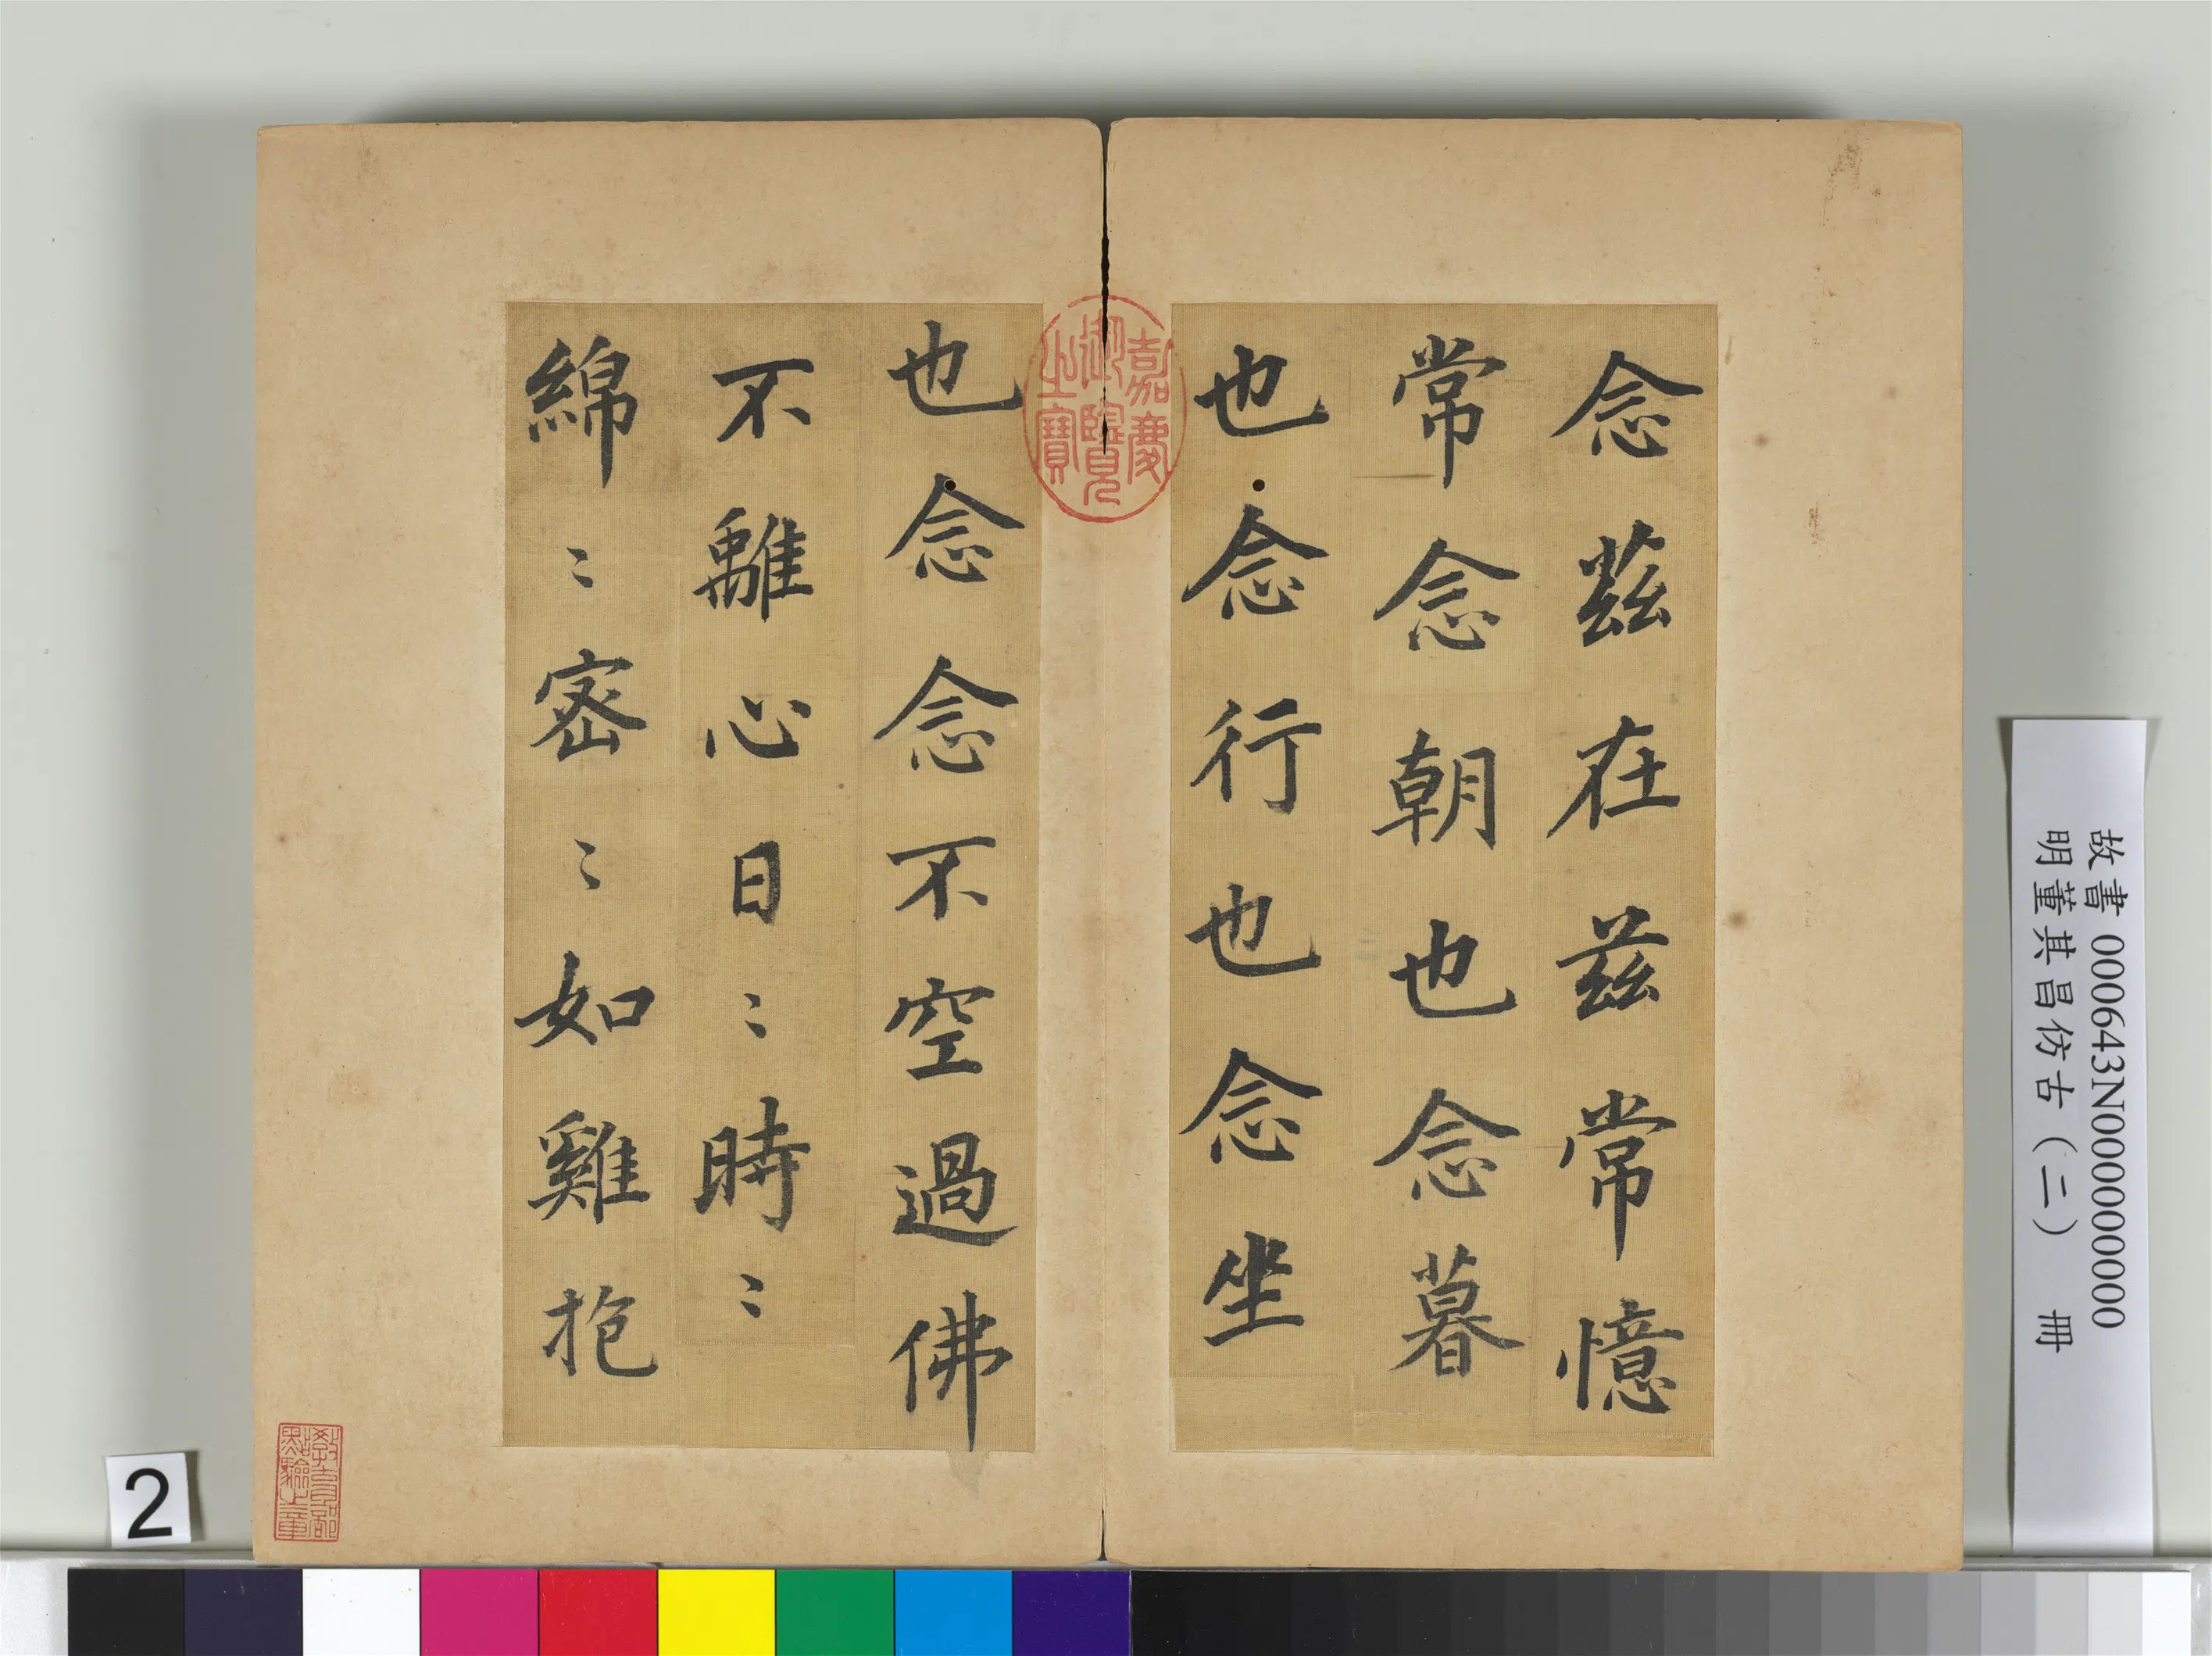 念茲在茲常憶
常念朝也念暮
也念行也念坐
也念念不空過佛
不離心日〻時〻
綿〻密〻如雞抱
嘉慶
御覽
之寶
教育部
點驗之章
故書 000643N000000000
明董其昌仿古（二） 冊
2